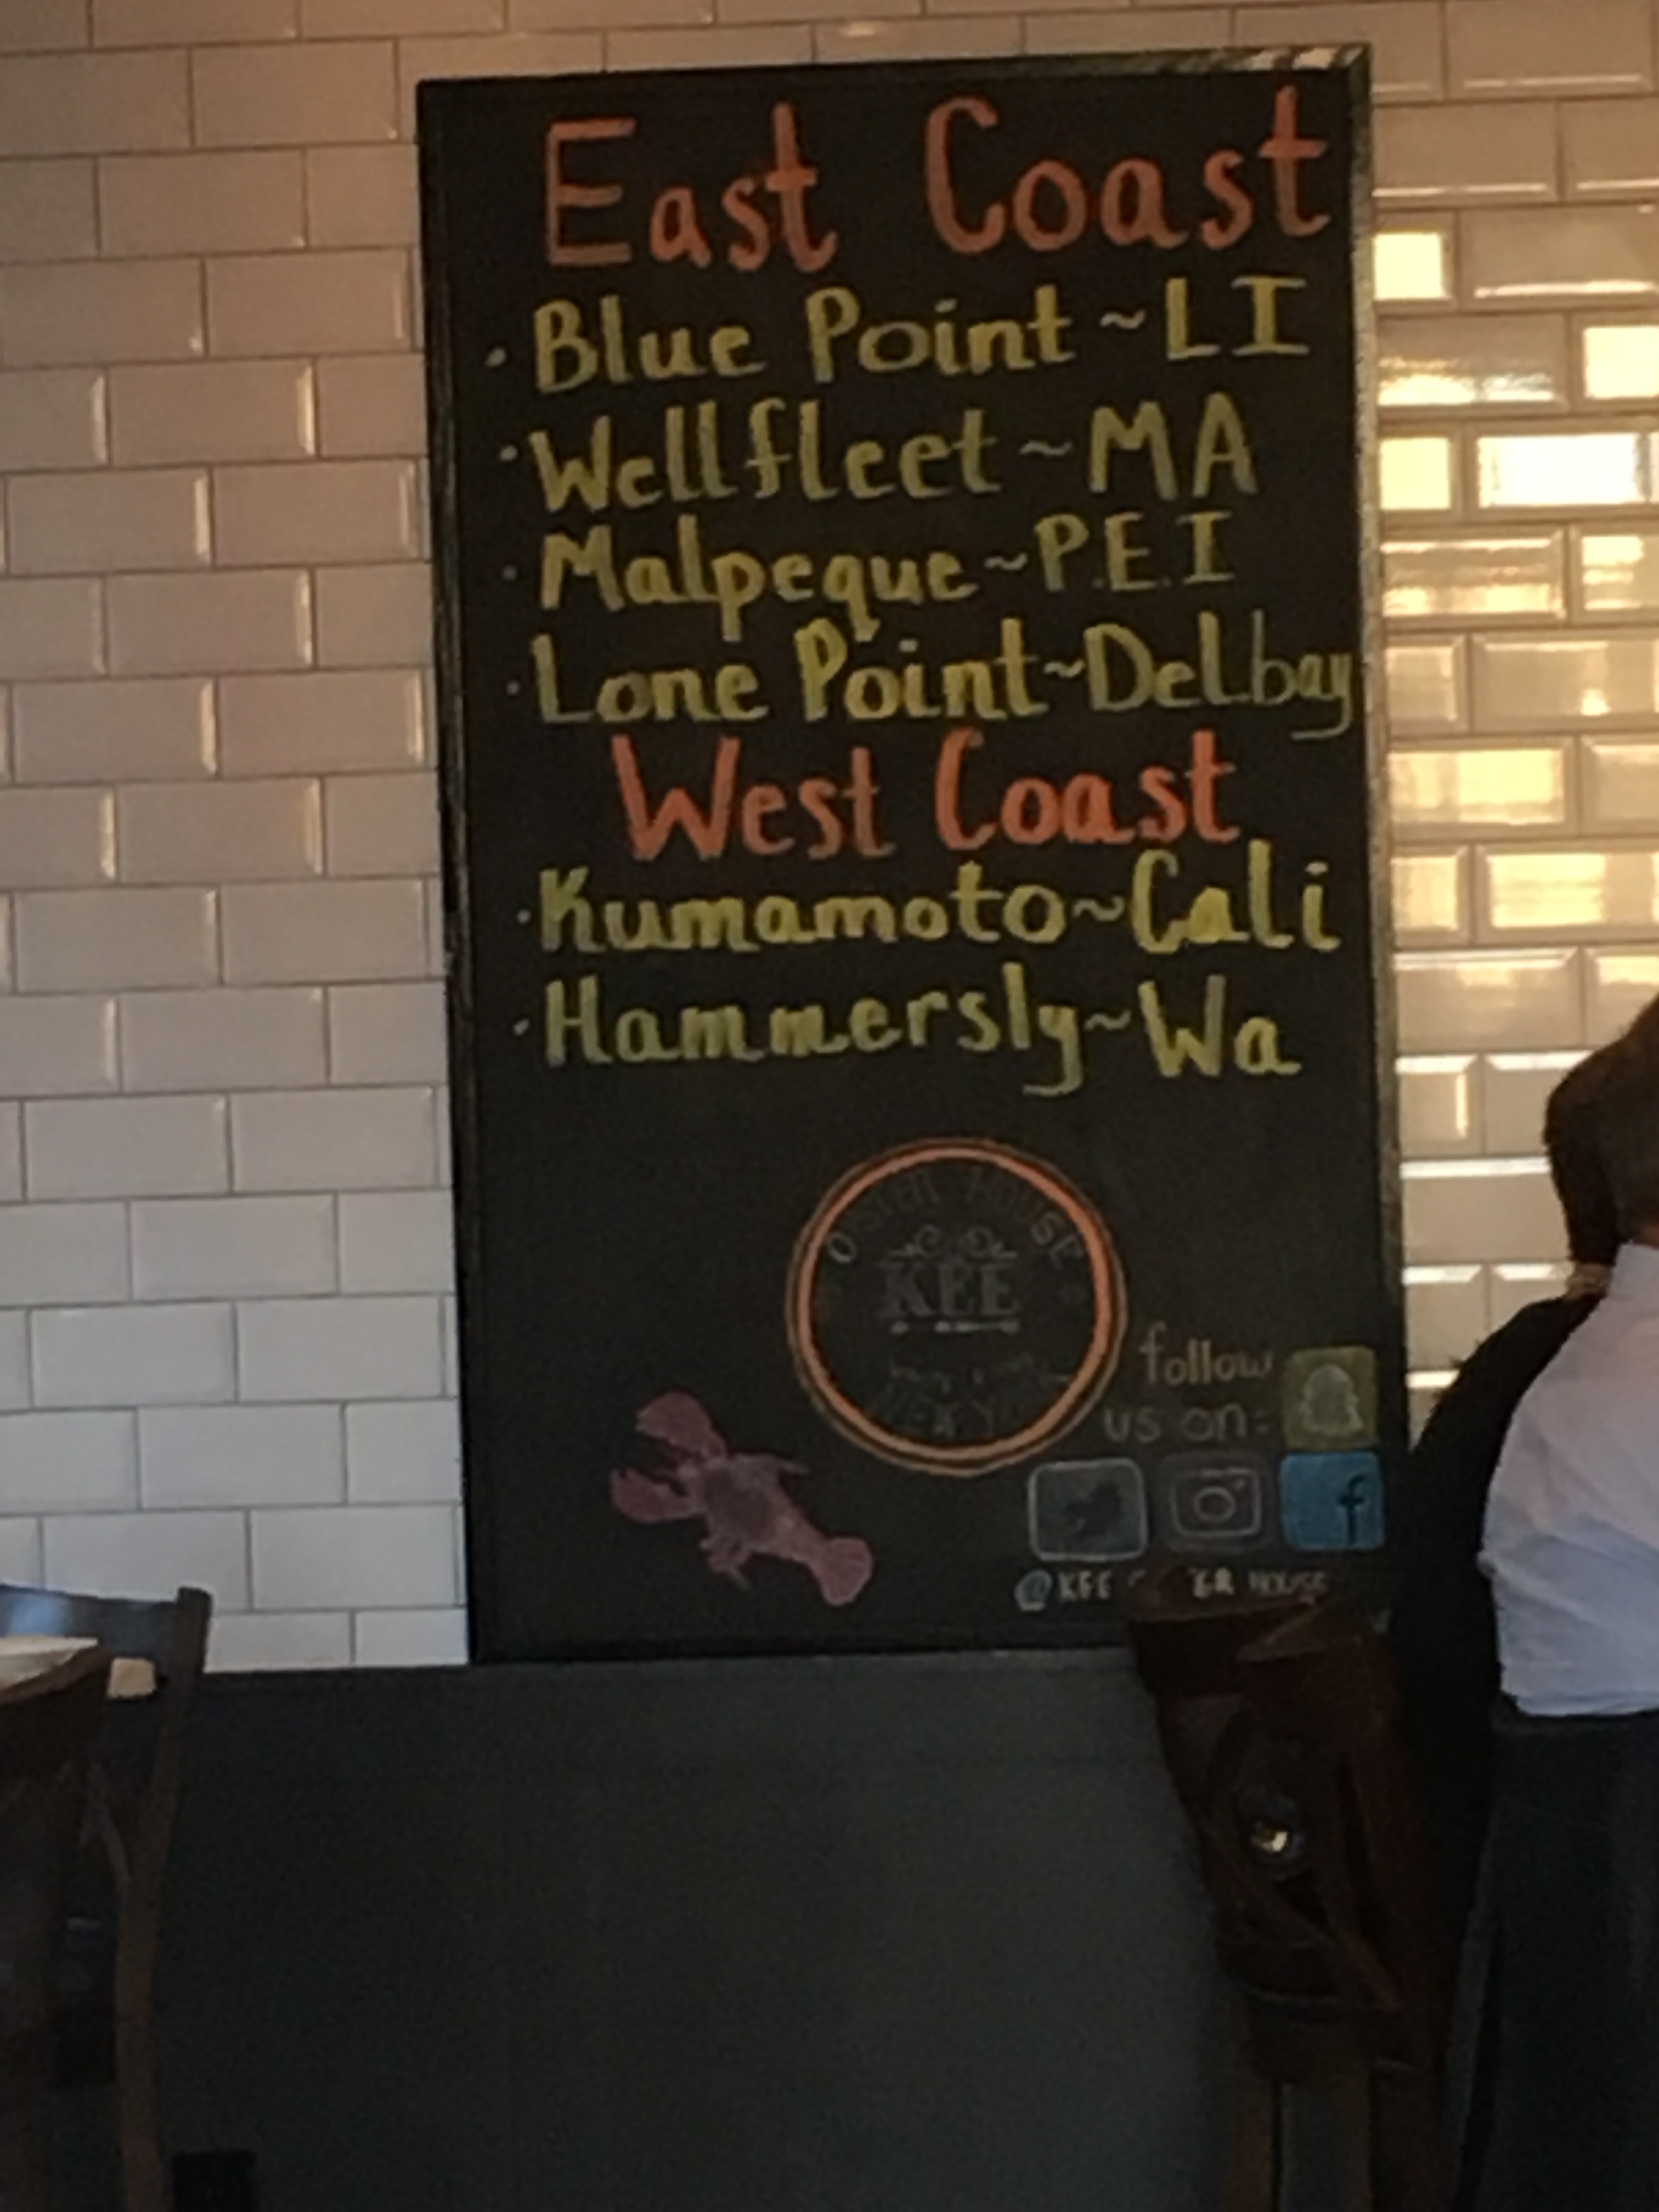 East Coast
· Blue Point ~ LI
· Wellfleet ~ MA
· Malpeque ~ P.E.I
· Lone Point ~ Del bay
West Coast
· Kumamoto ~ Cali
· Hammersly ~ Wa
OYSTER HOUSE
KEE
NEW
follow
us on:
f
@KEE ER HOUSE